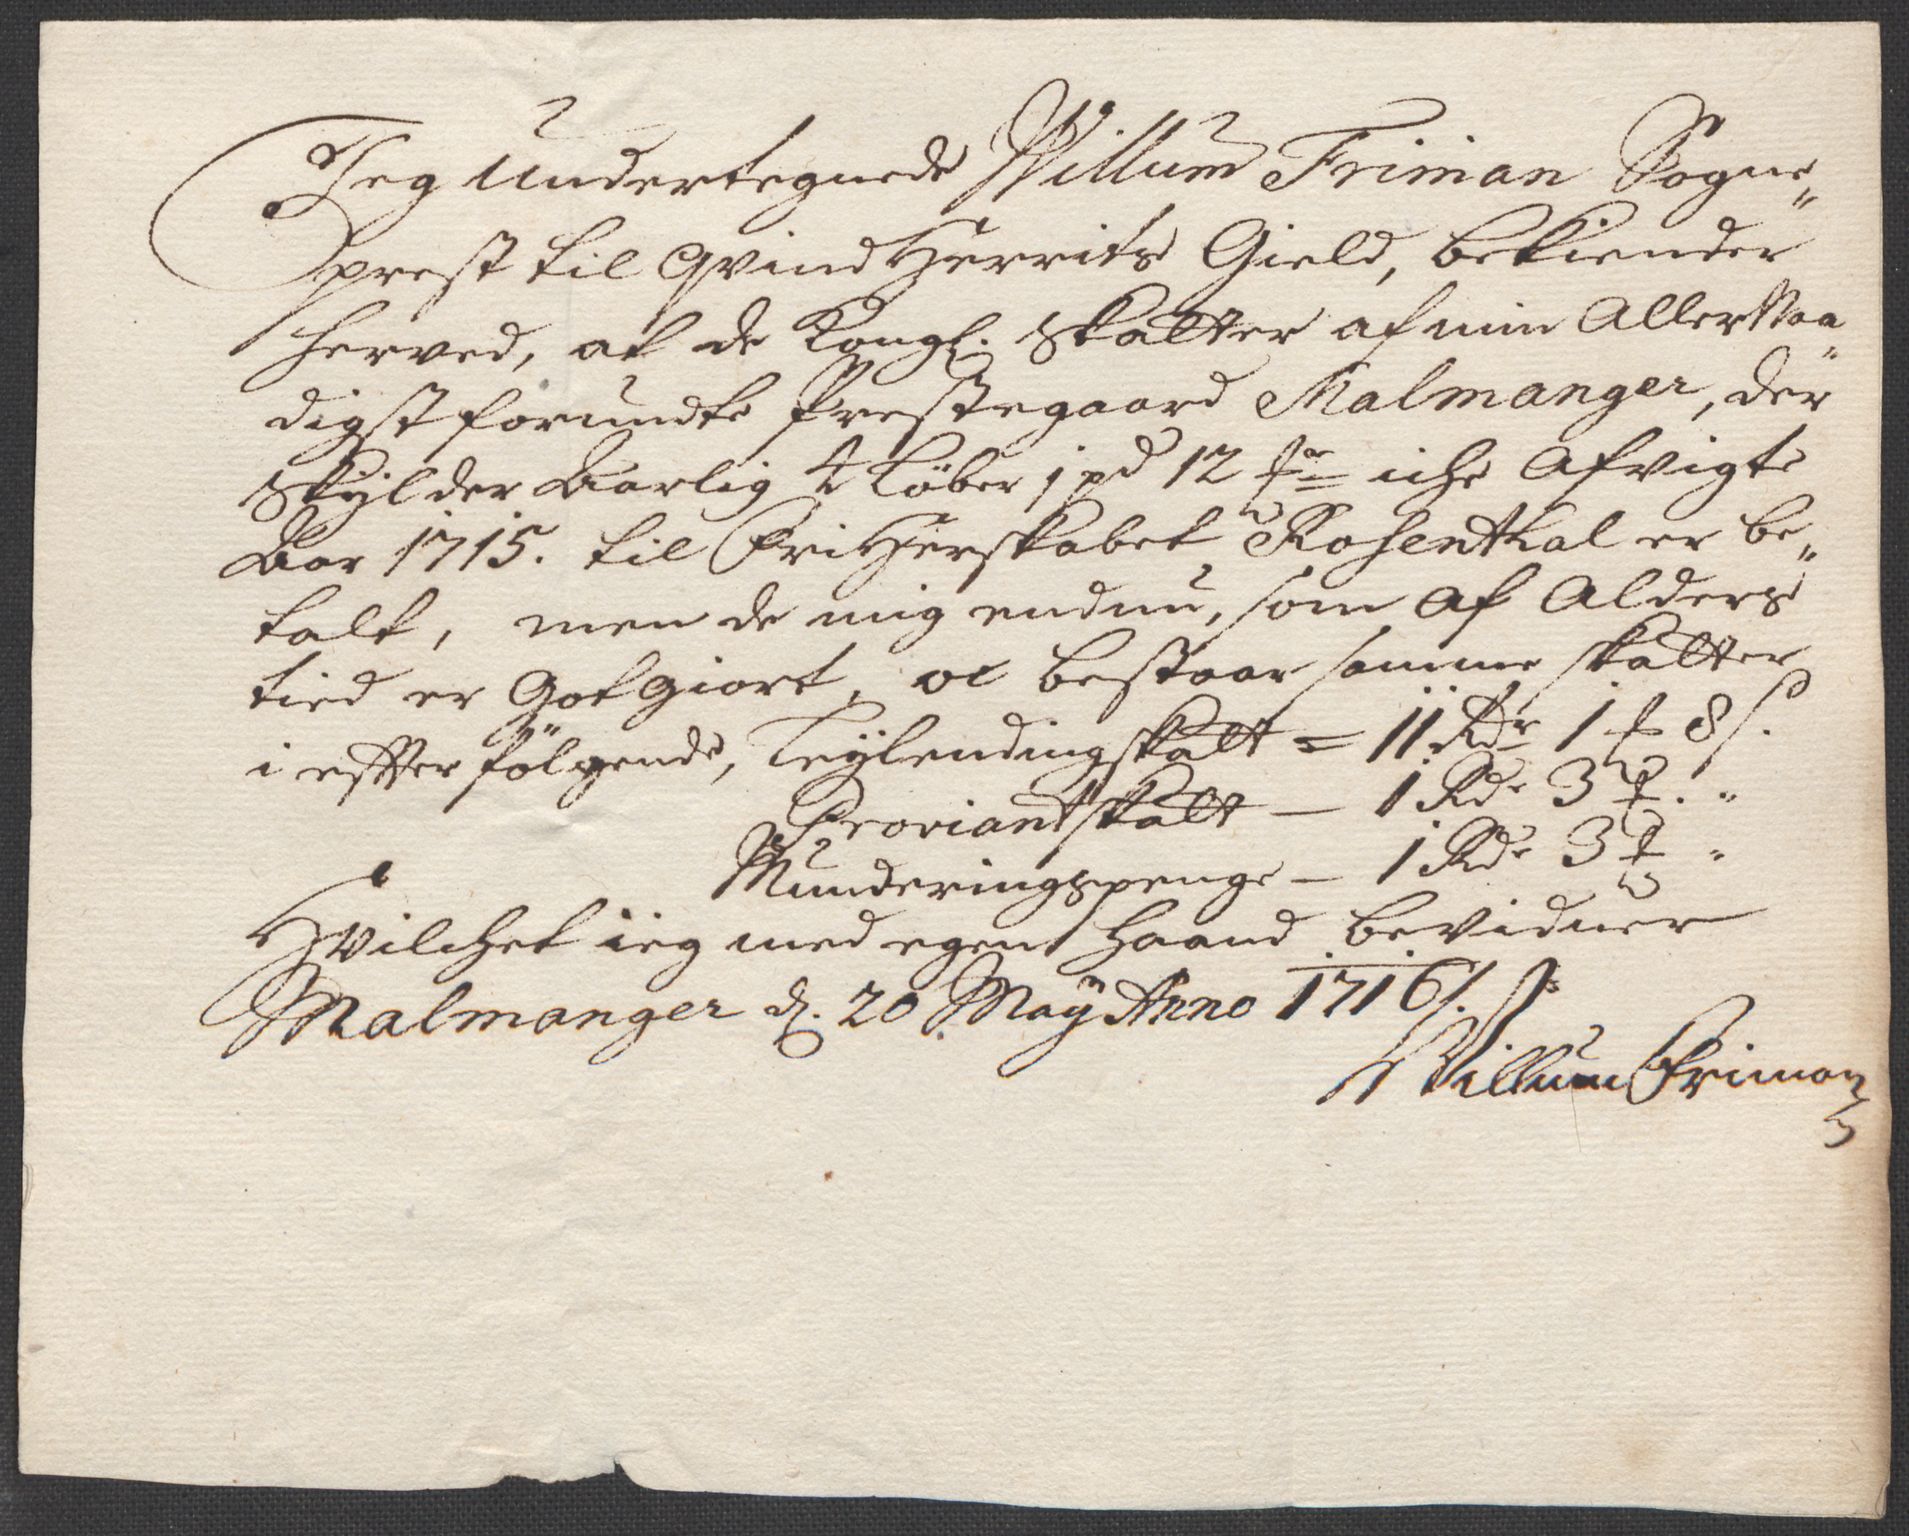 Jeg Undertegnede Willum Friman Sogne„
prest til QvindHerrits Gield, bekiender
herved, at de Kongl. Skatter af min AllerNaa„
digst forundte Prestegaard Malmanger, der
Skylder Aarlig Løber 1 pd 12 iche Afvigte
Aar 1715. til FriHerskabet Rosenthal er be„
talt, men de mig endnu, som Af Alders
tied er Gotgiort, oc bestaar samme skatter
i effterfølgende, Leylendingskatt = 11 Rdr 1 8 s.
Proviantskatt — 1 Rdr 3 . „
Munderingspenge — 1 Rdr 3 „
Hvilchet ieg med egen Haand bevidner
Malmanger d. 20 May Anno 1716/.
Willum Friman